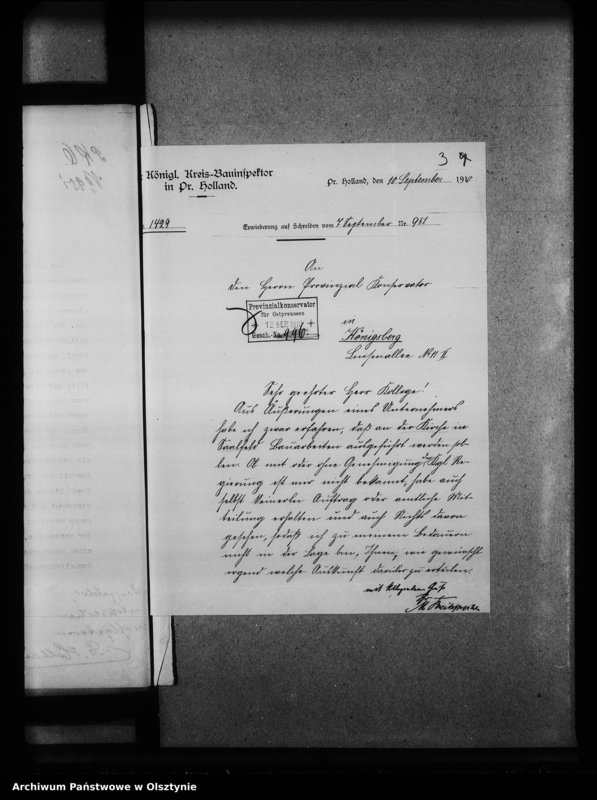 3
Königl. Kreis-Bauinspektor
in Pr. Holland.
Pr. Holland, den 10 September 1910
1429
Erwiederung auf Schreiben vom 7 September Nr. 951
An
den Herrn Provinzial Konservator
Provinzialkonservator
für Ostpreussen
12 SEP. 191
Gesch. No. 996
in
Königsberg
Luisenallee No 11
Sehr geehrter Herr Kollege!
Aus Äußerungen eines Unternehmers
habe ich zwar erfahren, daß an der Kirche in
Saalfeld Bauarbeiten ausgeführt werden sol-
len. Ob mit oder ohne Genehmigung der Kgl Re-
gierung ist mir nicht bekannt, habe auch
selbst keinerlei Auftrag oder amtliche Mit-
teilung erhalten und auch Nichts davon
gesehen, sodaß ich zu meinem Bedauern
nicht in der Lage bin, Ihnen, wie gewünscht
irgend welche Auskunft darüber zu erteilen.
mit kollegialem Gruß
Archiwum Państwowe w Olsztynie